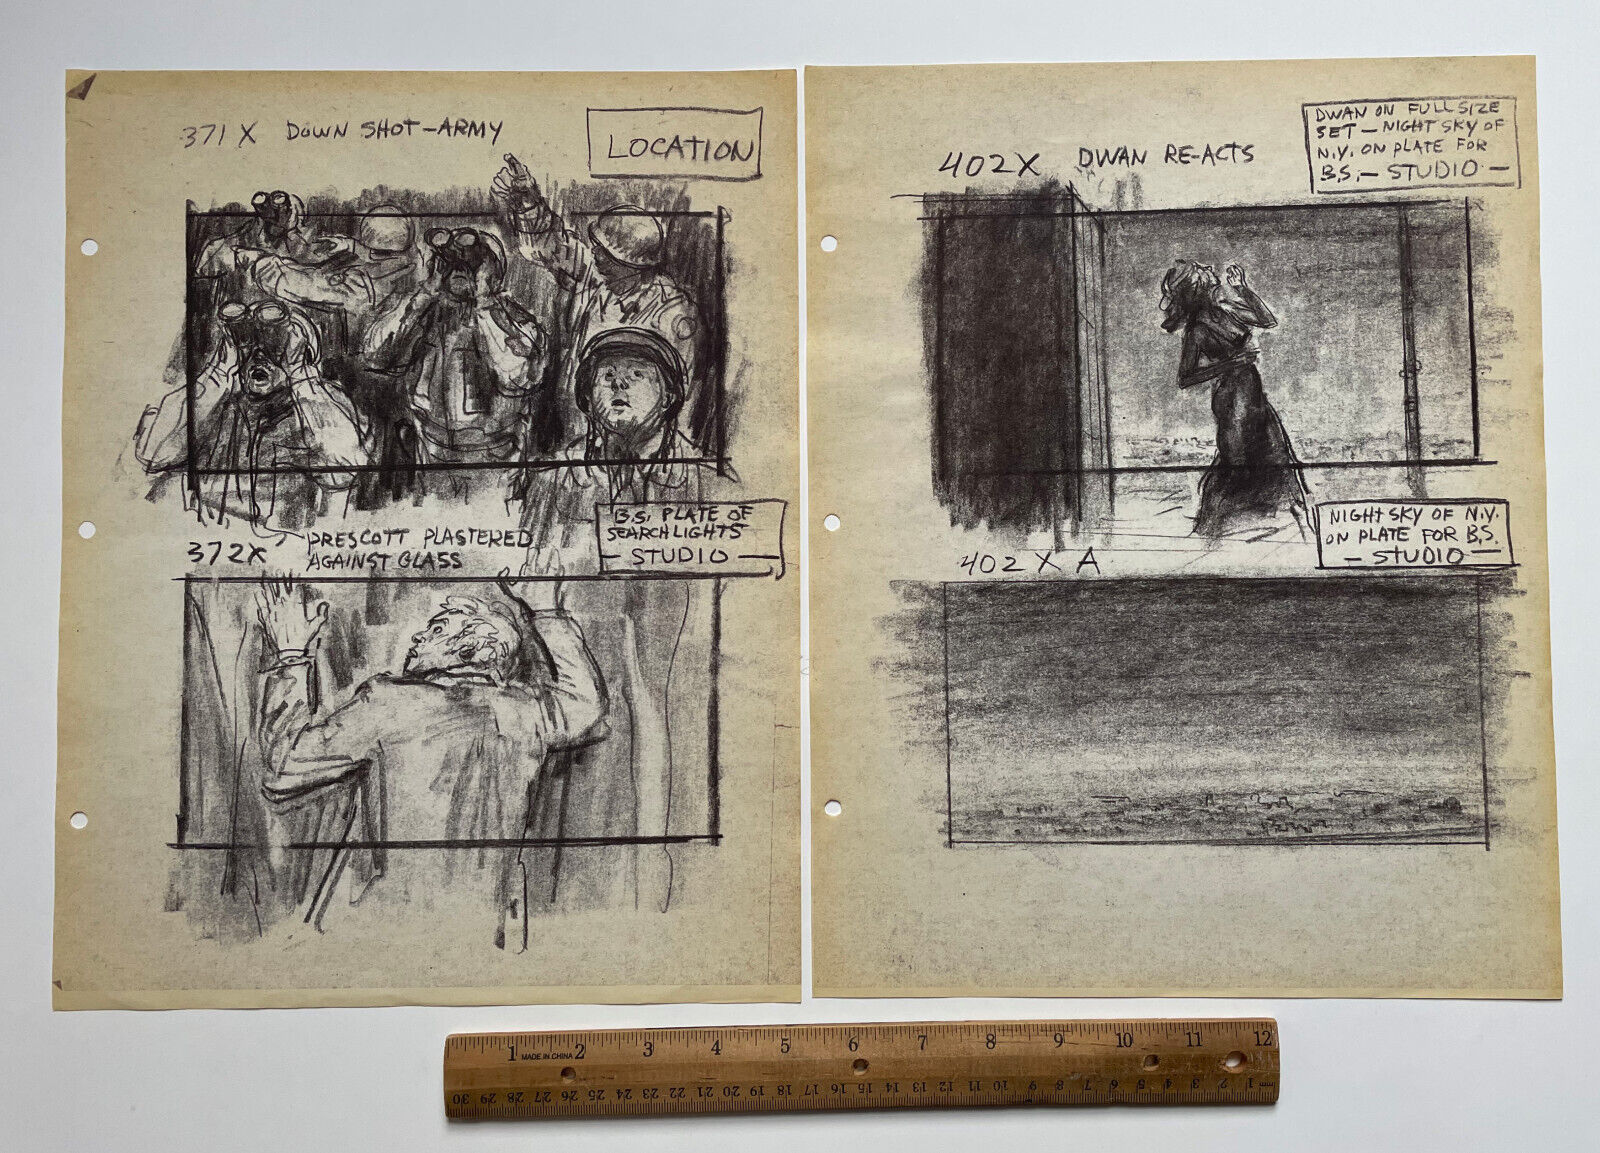 371 X DOWN SHOT-ARMY
LOCATION
372X
PRESCOTT PLASTERED
AGAINST GLASS
B.S. PLATE OF
SEARCHLIGHTS
- STUDIO -
402X DWAN RE-ACTS
DWAN ON FULL SIZE
SET - NIGHT SKY OF
N.Y. ON PLATE FOR
B.S. - STUDIO -
402 X A
NIGHT SKY OF N.Y.
ON PLATE FOR B.S.
- STUDIO -
1 MADE IN CHINA 2 3 4 5 6 7 8 9 10 11 12
30 29 28 27 26 25 24 23 22 21 20 19 18 17 16 15 14 13 12 11 10 9 8 7 6 5 4 3 2 1 mm